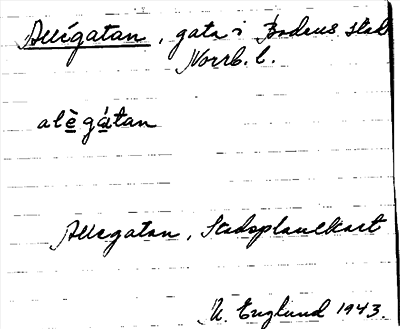 Allégatan, gata i Bodens stad
Norrb. l.
alè gátan
Allegatan, Stadsplanekart
H. Englund 1943.